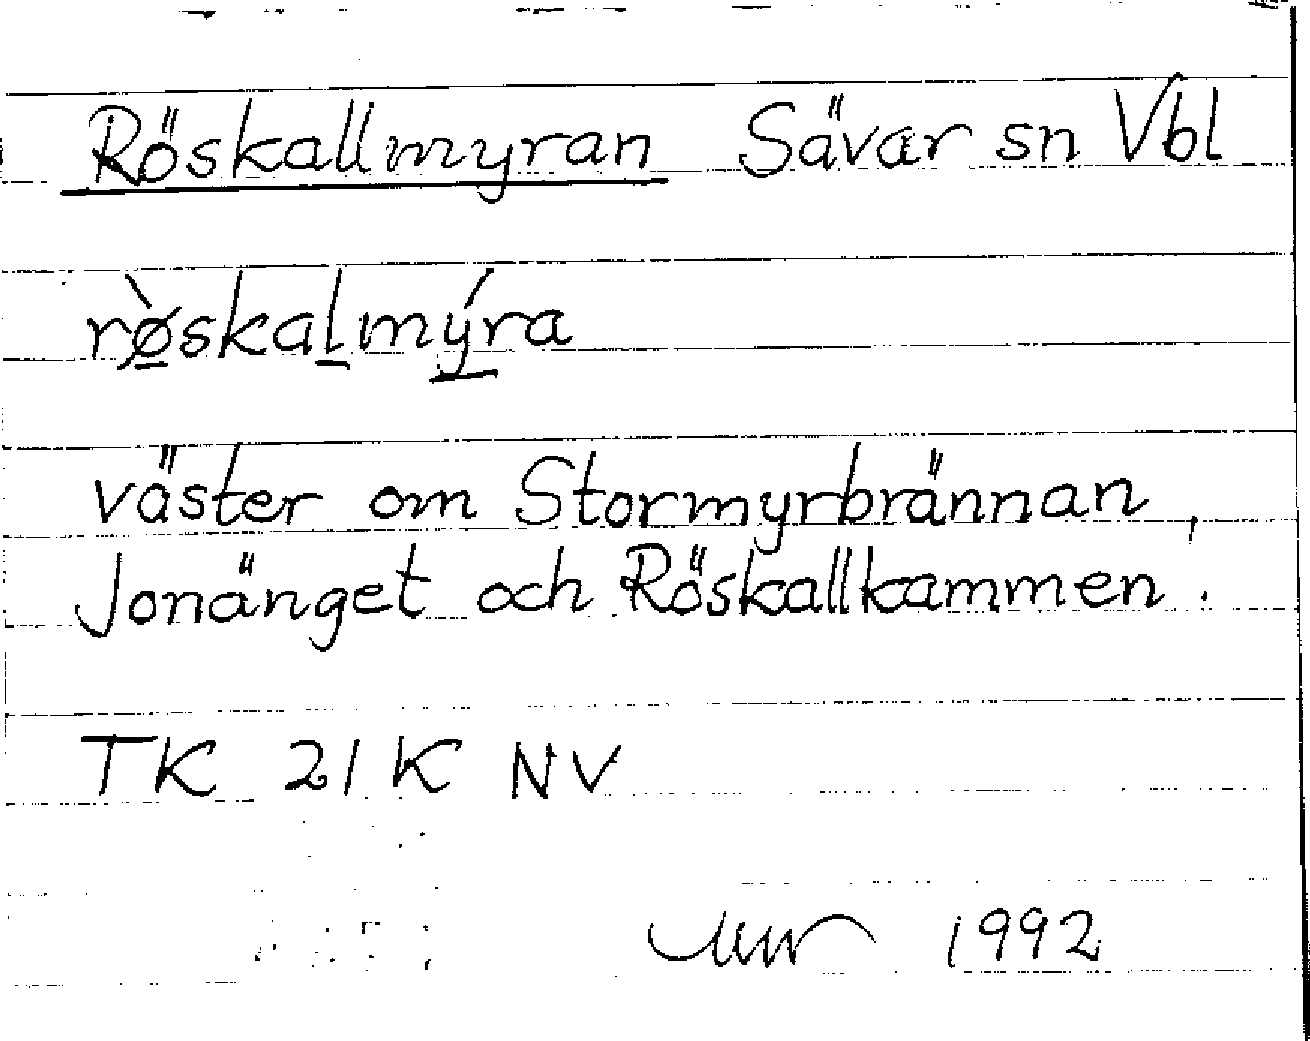 Röskallmyran Sävar sn Vbl
rø̱̀skaḻmý̱ra
väster om Stormyrbrännan,
Jonänget och Röskallkammen.
TK 21 K NV
1992